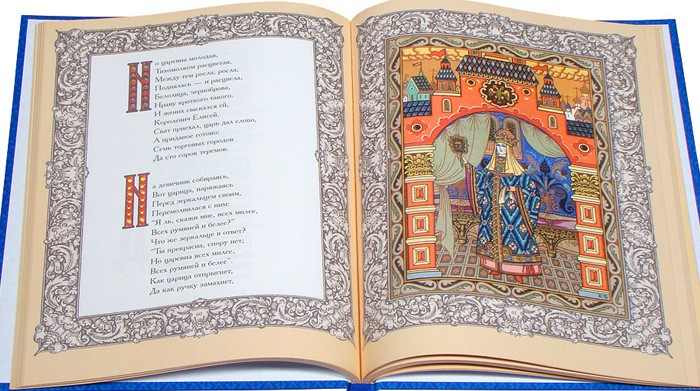 Но царевна молодая,
Тихомолком расцветая,
Между тем росла, росла,
Поднялась — и расцвела,
Белолица, черноброва,
Нраву кроткого такого.
И жених сыскался ей,
Королевич Елисей.
Сват приехал, царь дал слово,
А приданое готово:
Семь торговых городов
Да сто сорок теремов.
На девичник собираясь,
Вот царица, наряжаясь
Перед зеркальцем своим,
Перемолвилася с ним:
"Я ль, скажи мне, всех милее,
Всех румяней и белее?"
Что же зеркальце в ответ?
"Ты прекрасна, спору нет;
Но царевна всех милее,
Всех румяней и белее".
Как царица отпрыгнет,
Да как ручку замахнет,